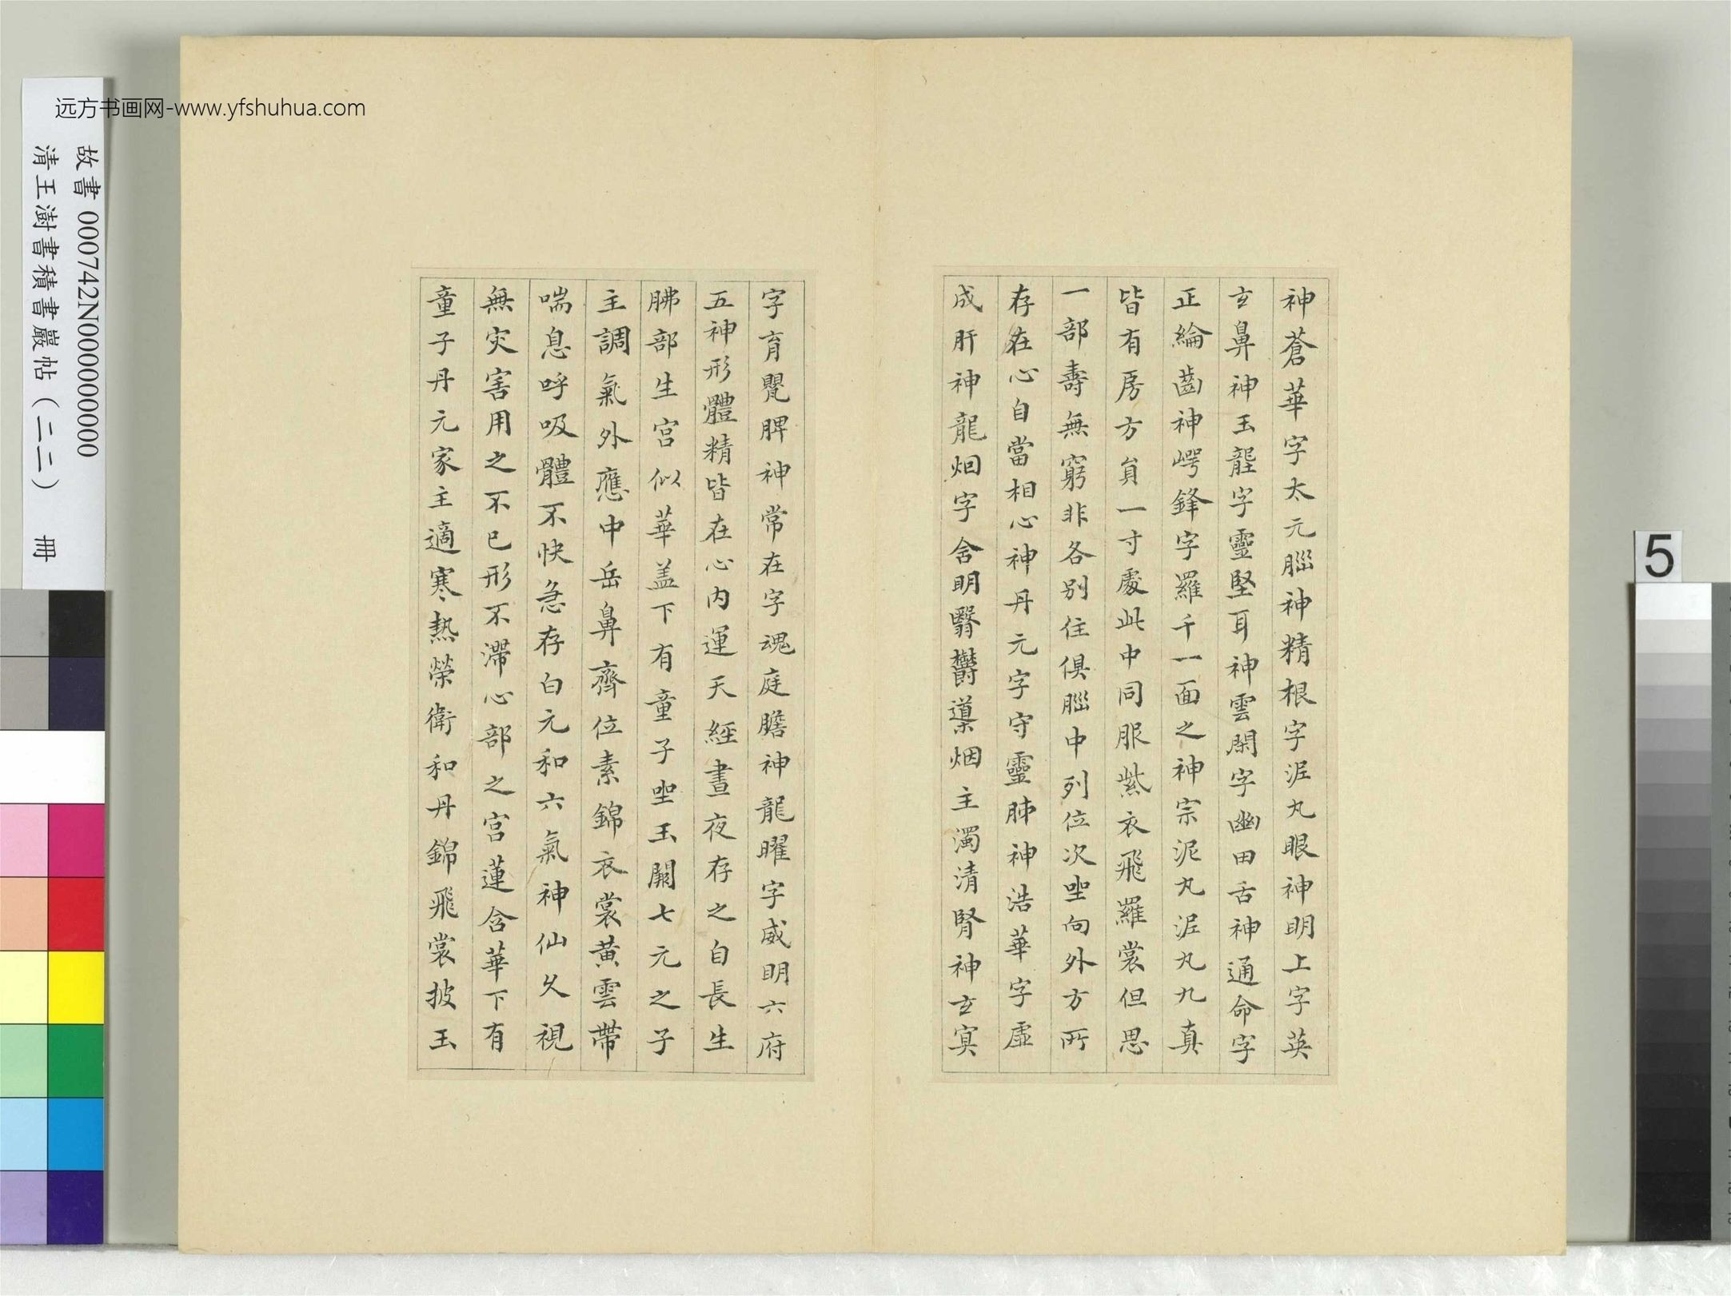 远方书画网-www.yfshuhua.com
故書 000742N000000000
清王澍書積書巖帖（二二） 冊
5
神蒼華字太元腦神精根字泥丸眼神明上字英
玄鼻神玉壟字靈堅耳神雲閑字幽田舌神通命字
正綸齒神崿鋒字羅千一面之神宗泥丸泥丸九真
皆有房方員一寸處此中同服紫衣飛羅裳但思
一部壽無窮非各別住俱腦中列位次坐向外方所
存在心自當相心神丹元字守靈肺神浩華字虛
成肝神龍烟字含明翳鬱導烟主濁清腎神玄冥
字育嬰脾神常在字魂庭膽神龍曜字威明六府
五神形體精皆在心內運天經晝夜存之自長生
肺部生宮似華盖下有童子坐玉闕七元之子
主調氣外應中岳鼻齊位素錦衣裳黃雲帶
喘息呼吸體不快急存白元和六氣神仙久視
無灾害用之不已形不滯心部之宮蓮含華下有
童子丹元家主適寒熱榮衛和丹錦飛裳披玉